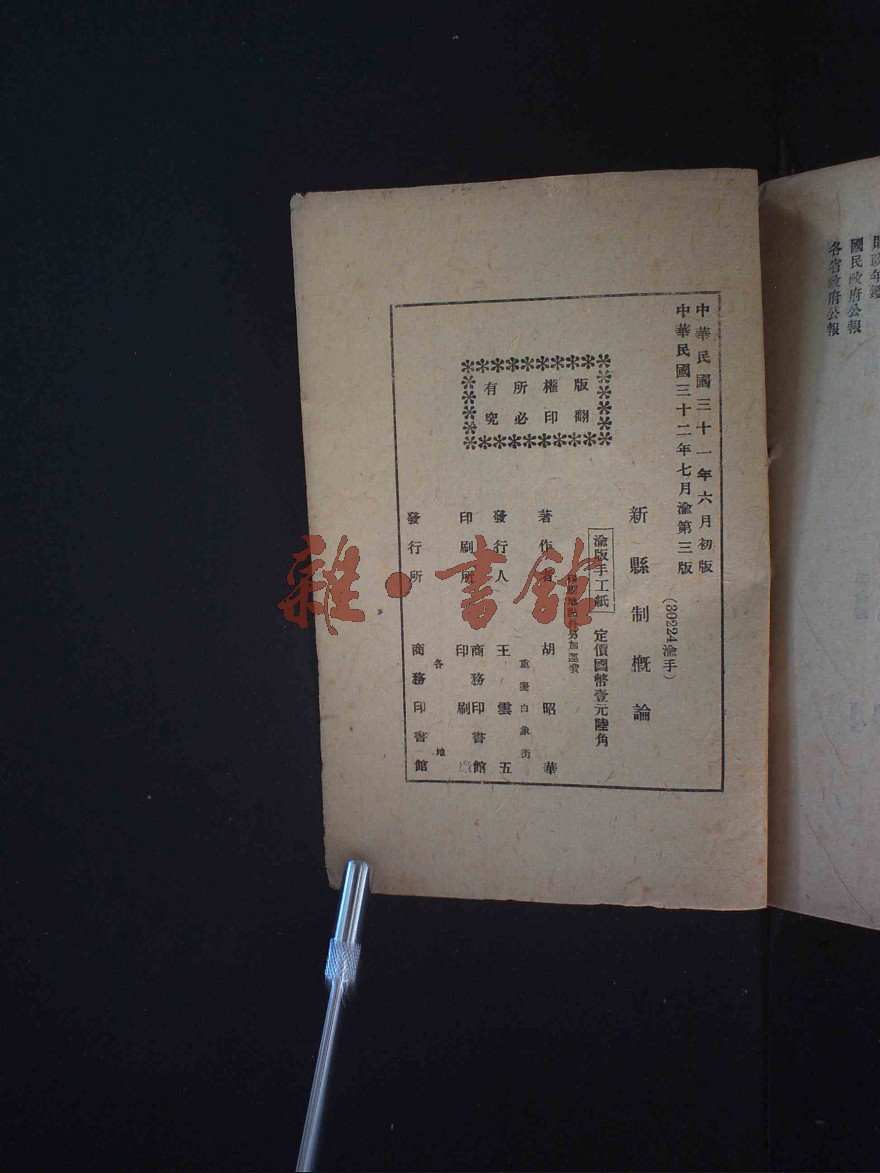 財政年鑑
國民政府公報
各省政府公報
中華民國三十一年六月初版
中華民國三十二年七月渝第三版
(30224渝手)
新縣制概論
渝版手工紙 定價國幣壹元陸角
印刷地點外另加運費
著作者 胡昭華
重慶白象街
發行人 王雲五
印刷所 商務印書館
印刷廠
各地
發行所 商務印書館
版權所有
翻印必究
雜·書館